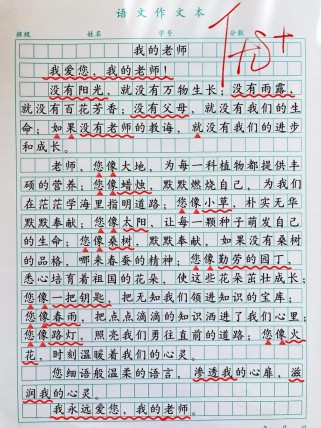 语文作文本
班级 姓名 学号 分数
我的老师
我爱您,我的老师!
没有阳光,就没有万物生长!没有雨露,
就没有百花芳香;没有父母,就没有我们的生
命;如果没有老师的教诲,就没有我们的进步
和成长。
老师,您像大地,为每一科植物都提供丰
硕的营养;您像蜡烛,默默燃烧自己,为我们
在茫茫学海里指明道路;您像小草,朴实无华
默默奉献;您像太阳,让每一颗种子萌发自己
的生命;您像桑树,默默奉献,如果没有桑树
的品格,哪来春蚕的精神;您像勤劳的园丁,
悉心培育着祖国的花朵,使这些花朵茁壮成长;
您像一把钥匙,把无知我们领进知识的宝库;
您像春雨,把点点滴滴的知识洒进了我们心里;
您像路灯,照亮我们勇往直前的道路;您像火
花,时刻温暖着我们的心灵。
您细语般温柔的语言,渗透我的心扉,滋
润我的心灵。
我永远爱您,我的老师。